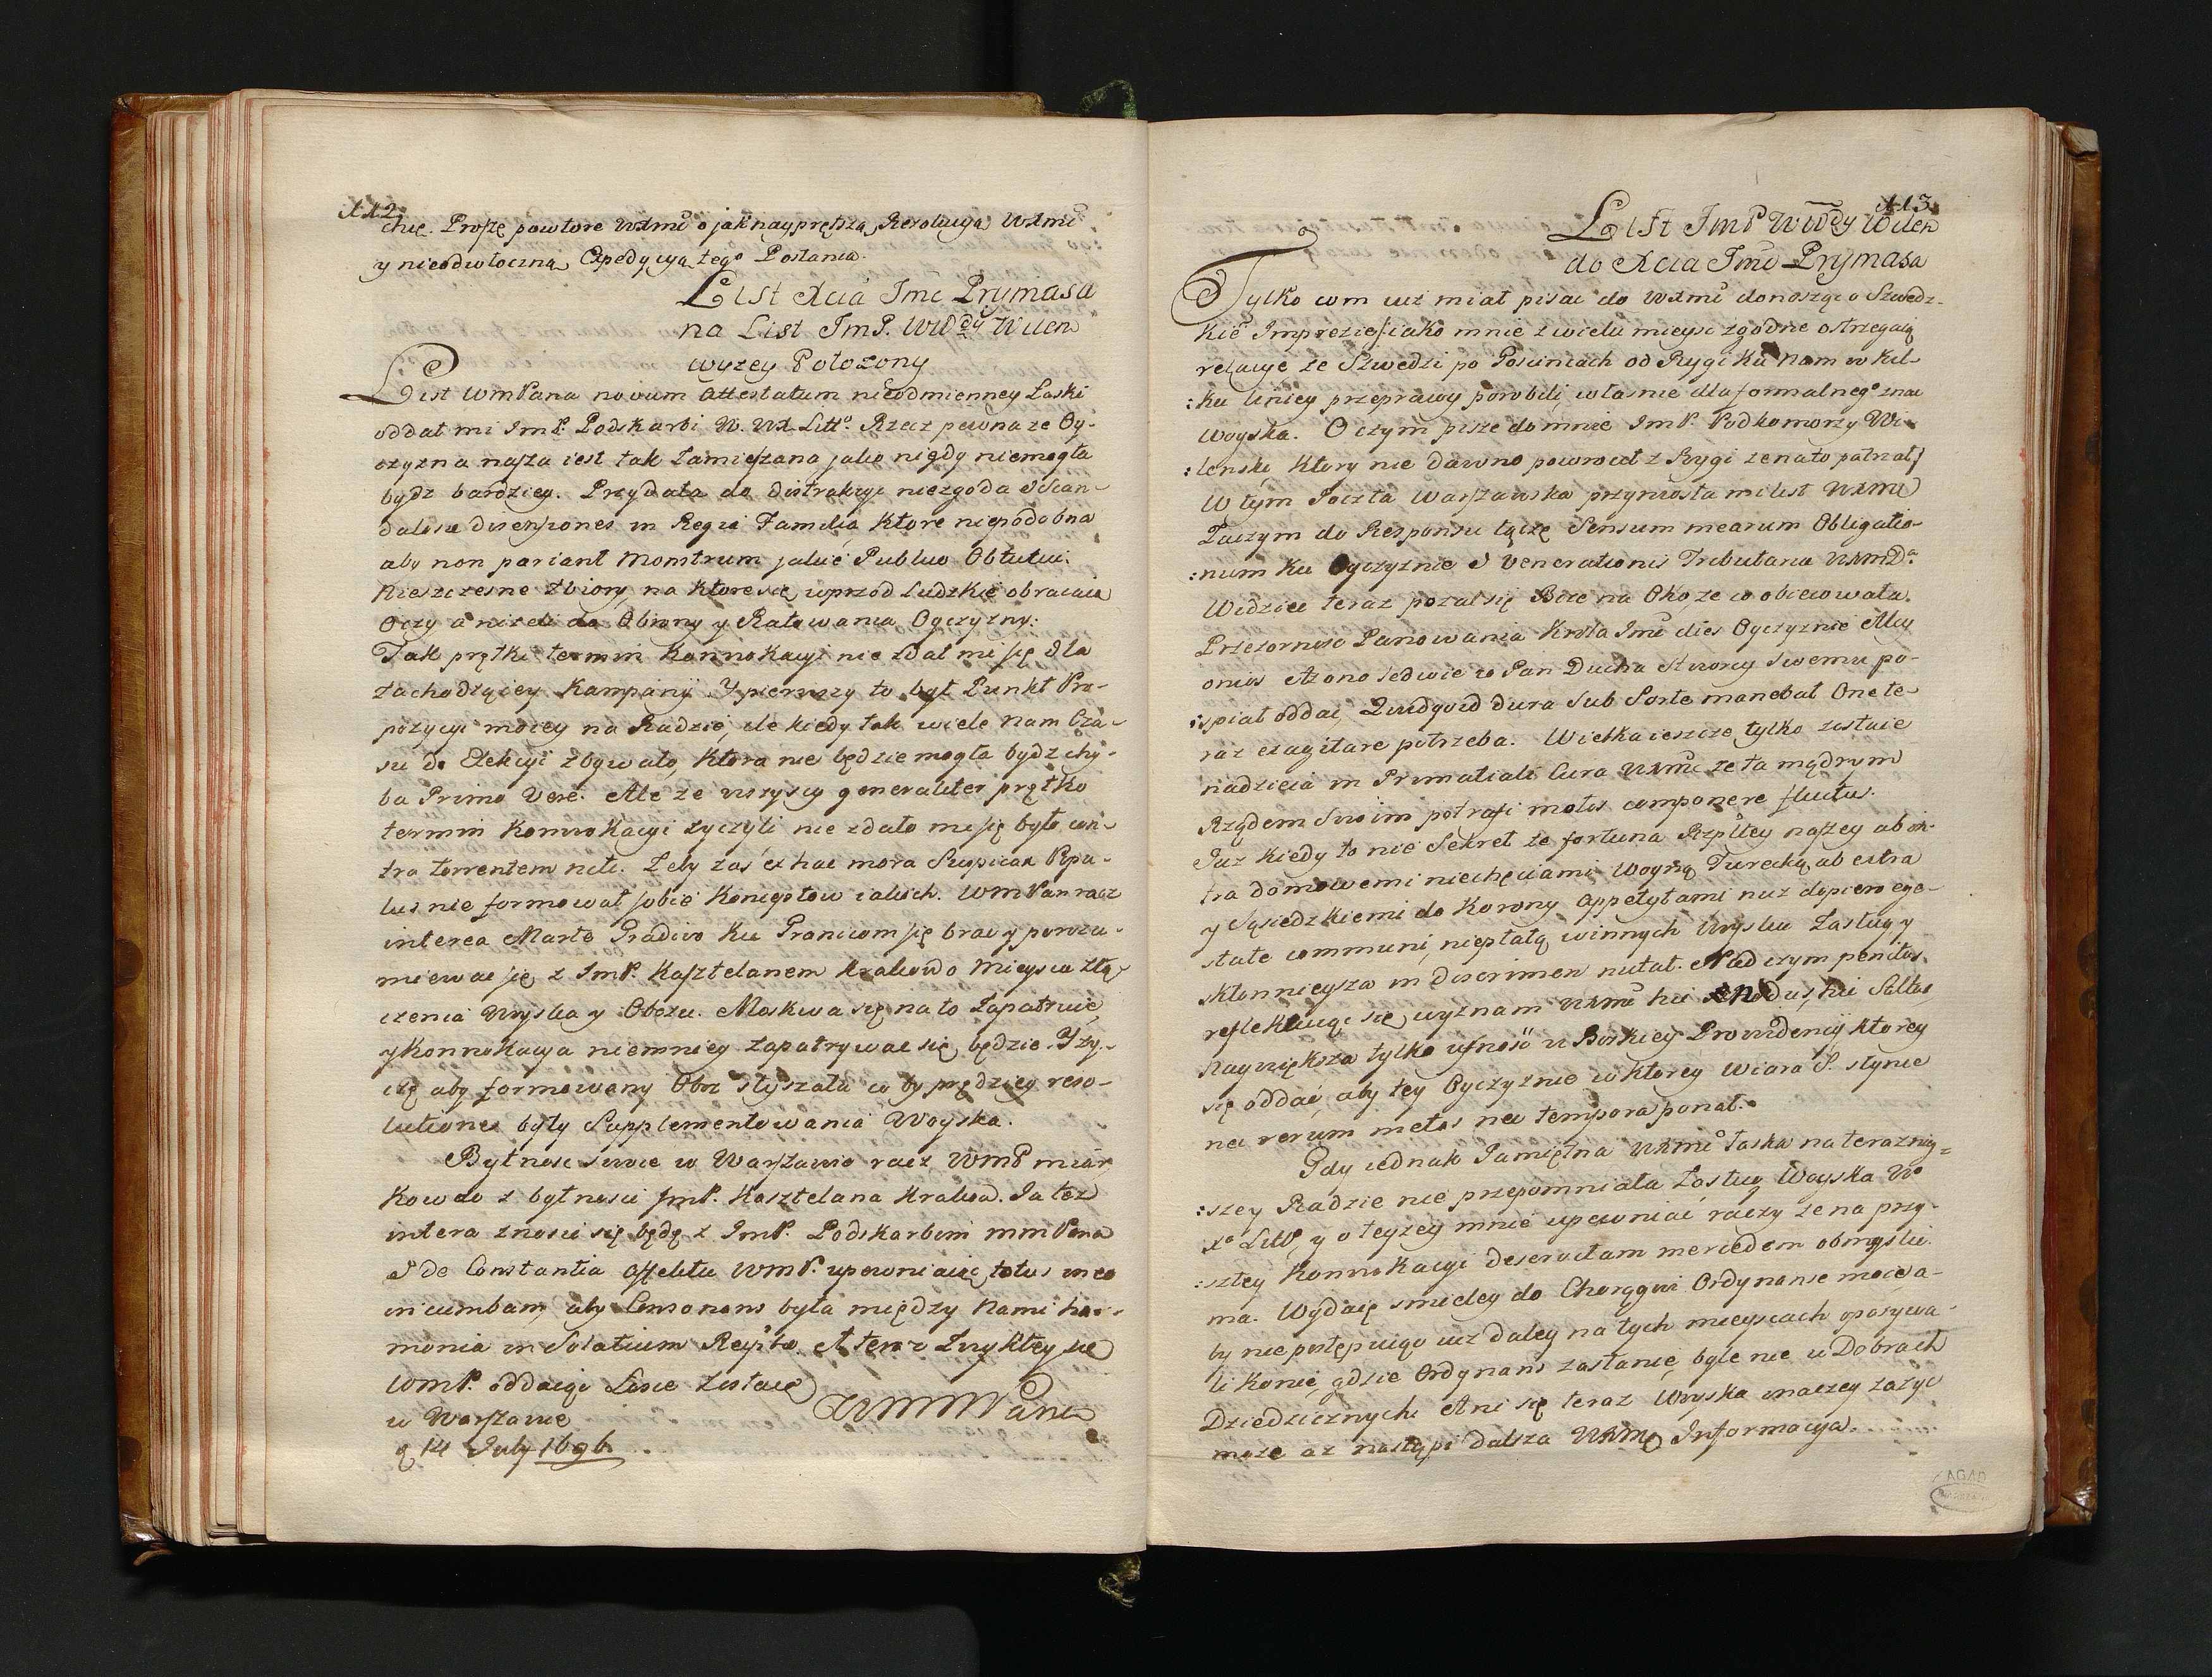 112.
chię. Proszę powtore WXMci o jak nayprętszą Rezolucyą WXMci
y nieodwłoczną Expedycyą tego Posłania.
List Xcia Jmc Prymasa
na List JmP. WWdy Wilen
wyzey Położony
List WmPana novum Attestatum nieodmienney Łaski
oddał mi JmP. Podskarbi N. WX. Litto. Rzecz pewna ze Oy-
czyzna nasza iest tak Zamięszana jako nigdy niemogła
bydz bardziey. Przydała do distrakcyi niezgoda & Scan-
dalosae disensiones in Regia Familia, Ktore niepodobna
aby non pariant Monstrum jakie Publico Obtutui.
Nieszczesne Zbiory, na Ktore się wprzod Ludzkie obracaią
Oczy a nizeli do Obrony y Ratowania Oyczyzny:
Tak prętki termin Konwokacyi nie zdał mi się dla
zachodzącey Kampanij. Y pierwszy to był Punkt Pro-
pozycyi moiey na Radzie, ile kiedy tak wiele nam Cza-
su do Elekcyi zbywało, Ktora nie będzie mogła bydz chy-
ba Primo Vere. Ale ze wszyscy generaliter prętko
termin Konwokacyi zyczyli nie zdało mi się było con-
tra torrentem niti. Zeby zas ex hac mora Suspicax Popu-
lus nie formował sobie Konceptow iakich. WmPan racz
interea Marte Gradivo Ku Granicom się brac y porozu-
miewac się z JmP. Kasztelanem Krakow o Mieyscu Złą-
czenia Woyska y Obozu. Moskwa się na to Zapatruie,
y Konwokacya niemniey zapatrywac się będzie. Zy-
czę aby formowany Oboz słyszała co by prędzey reso-
lutiones były Supplementowania Woyska.
Bytnosc swoie w Warszawie racz WmP miar
Kowac z bytnosci JmP. Kasztelana Krakow. Ia tez
interea znosic się będę z JmP. Podskarbim mm Pana
& de Constantia affektu WmP. upewniaiąc totus in eo
incumbam, aby Consonans była między Nami har-
monia in Solatium Reipcae. A teraz Zwykłey się
WmP. oddaiąc Łasce Zostaię
WmmPana
w Warszawie
d 14 July 1696.
113.
List JmP WWdy Wilen
do Xcia Jmc Prymasa
Tylko com iuz miał pisac do WXMci donosząc o Szwedz-
kie Imprezie, iako mnie z wielu mieysc zgodne ostrzegaią
relacye ze Szwedzi po Gosciniach od Rygi Ku Nam w Kil-
:ku liniey przeprawy porobili, własnie dla formalnego znac
Woyska. O czym pisze do mnie JmP. Podkomorzy Wi-
:lenski, Ktory nie dawno powrocił z Rygi ze na to patrzał
W tym Poczta Warszawska przyniosła mi list WXMci
Zaczym do Responsu łączę Sensum mearum Obligatio-
:num Ku Oyczyznie & Venerationis Tributaria WXMDa
Widzieć teraz pozal się Boze na Oko, ze co obiecowała
Przezornosc Panowania Krola Jmci dies Oyczyznie Alcy
onios. A zono ledwie co Pan Ducha Stworcy Swemu po-
:spiał oddać, Quidquid dura Sub Sorte manebat One te-
raz exagitare potrzeba. Wielka ieszcze tylko zostaie
nadzieia in Primatiali Cura WXMci ze ta mądrym
Rządem Swoim potrafi motos componere fluctus.
Iuz kiedy to nie Sekret ze fortuna Rzpltey naszey ab in-
tra domowemi niechęciami Woyną Turecką, ab extra
y Sąsiedzkiemi do Korony Appetytami nuz dopiero ege-
state communi, niepłatą winnych Woysku Zasług y
skłonnieysza in discrimen nutat. Nad czym penitus
reflektuiąc się, wyznam WXMci hic Rhodus, hic Saltus
Naywiększa tylko ufnosc w Boskiey Prowidencyi, Ktorey
się oddać, aby tey Oyczyznie w Ktorey Wiara S. słynie
nec rerum metas nec tempora ponat.
Gdy iednak Pamiętna WXMci łaska na terazniey=
:szey Radzie nie przepomniała Zasług Woyska Wo
Xo Litt, y o teyzey mnie upewniać raczy ze na przy-
:szłey Konwokacyi deservitam mercedem obmysli.
ma. Wydaię smieley do Chorągwi Ordynanse moie a-
by nie postępuiąc iuz daley na tych mieyscach oposzywa-
li Konie, gdzie Ordynans zastanie, byle nie w Dobrach
Dziedzicznych. Ani się teraz Woyska inaczey zazyc
moze az nastąpi dalsza WXMci Informacya.
AGAD